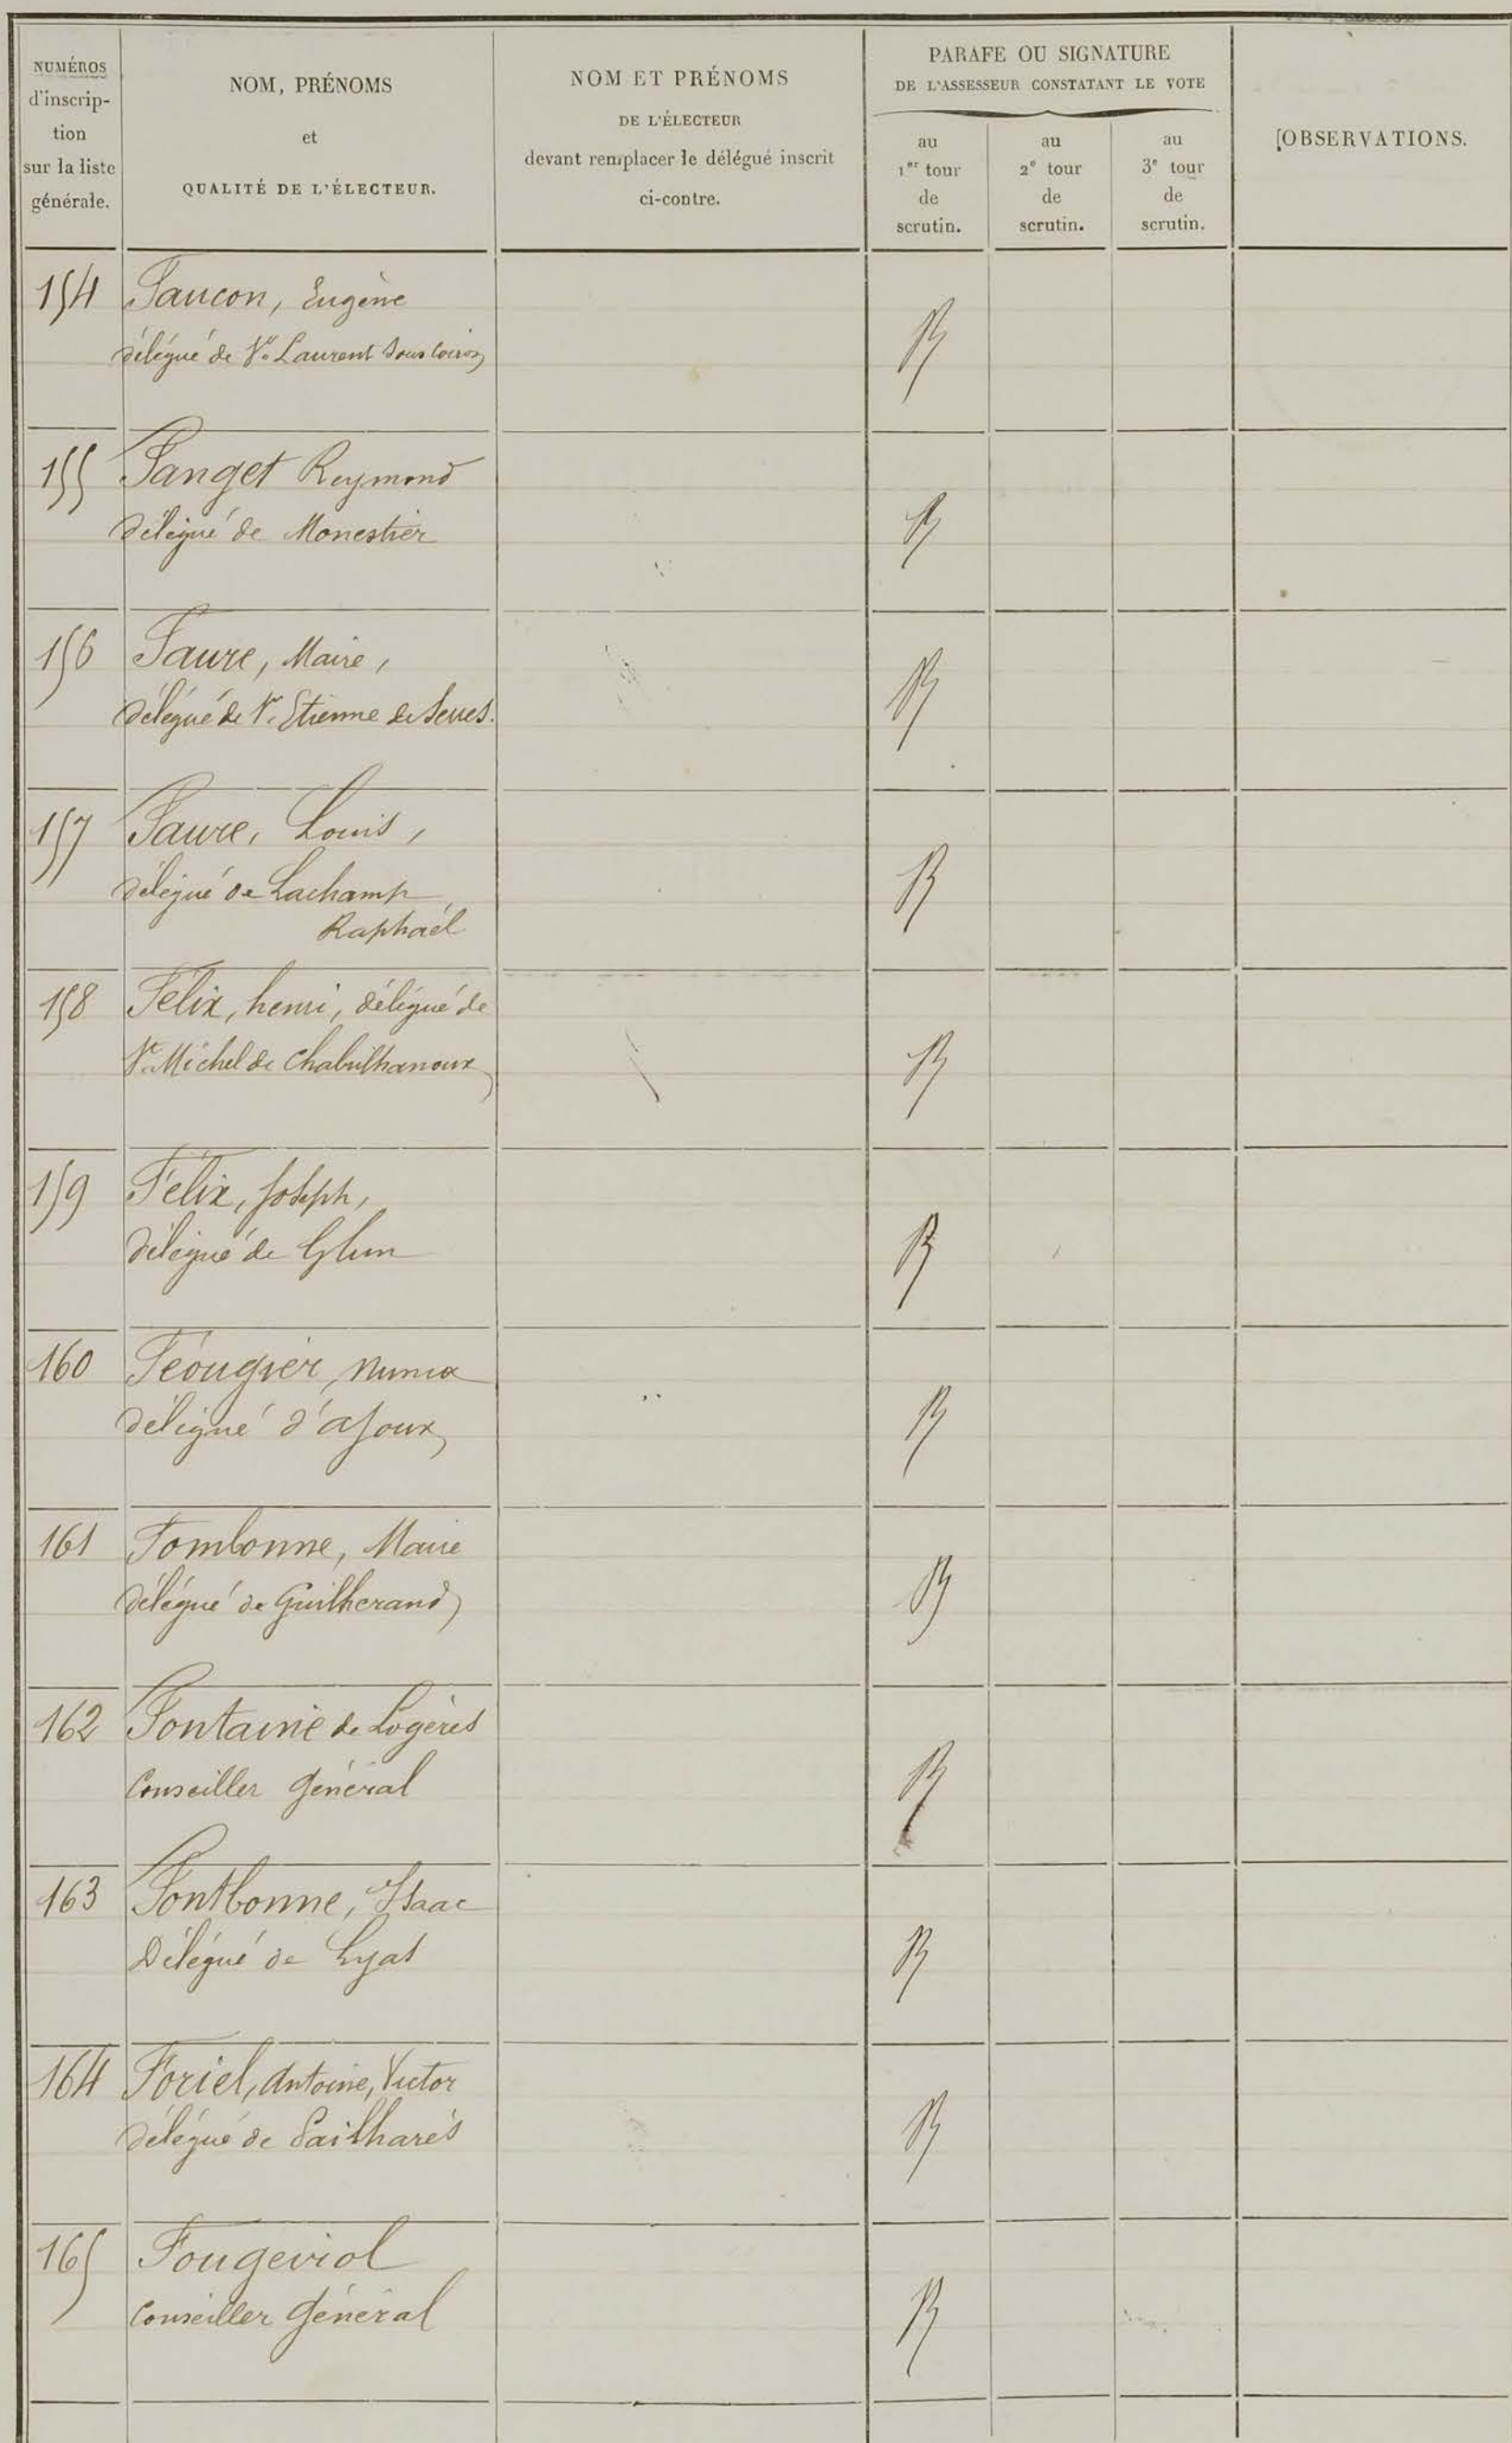 NUMÉROS
d'inscrip-
tion
sur la liste
générale.
NOM, PRÉNOMS
et
QUALITÉ DE L'ÉLECTEUR.
NOM ET PRÉNOMS
DE L'ÉLECTEUR
devant remplacer le délégué inscrit
ci-contre.
PARAFE OU SIGNATURE
DE L'ASSESSEUR CONSTATANT LE VOTE
au
1er tour
de
scrutin.
au
2e tour
de
scrutin.
au
3e tour
de
scrutin.
OBSERVATIONS.
154 Faucon, Eugène
délégué de St Laurent sous Coiron
155 Fanget Reymond
Délégué de Monestier
156 Faure, Maire,
Délégué de St Etienne de Serres.
157 Faure, Louis,
délégué de Lachamp
Raphaël
158 Félix, henri, délégué de
St Michel de Chabrilhanoux
159 Félix, Joseph,
Délégué de Glun
160 Féougier, Numa
délégué d'ajoux
161 Fombonne, Maire
délégué de Guilherand
162 Fontaine de Logères
Conseiller Général
163 Fontbonne, Isaac
Délégué de Lyas
164 Foriel, Antoine, Victor
délégué de Pailharès
165 Fougeirol
Conseiller Général